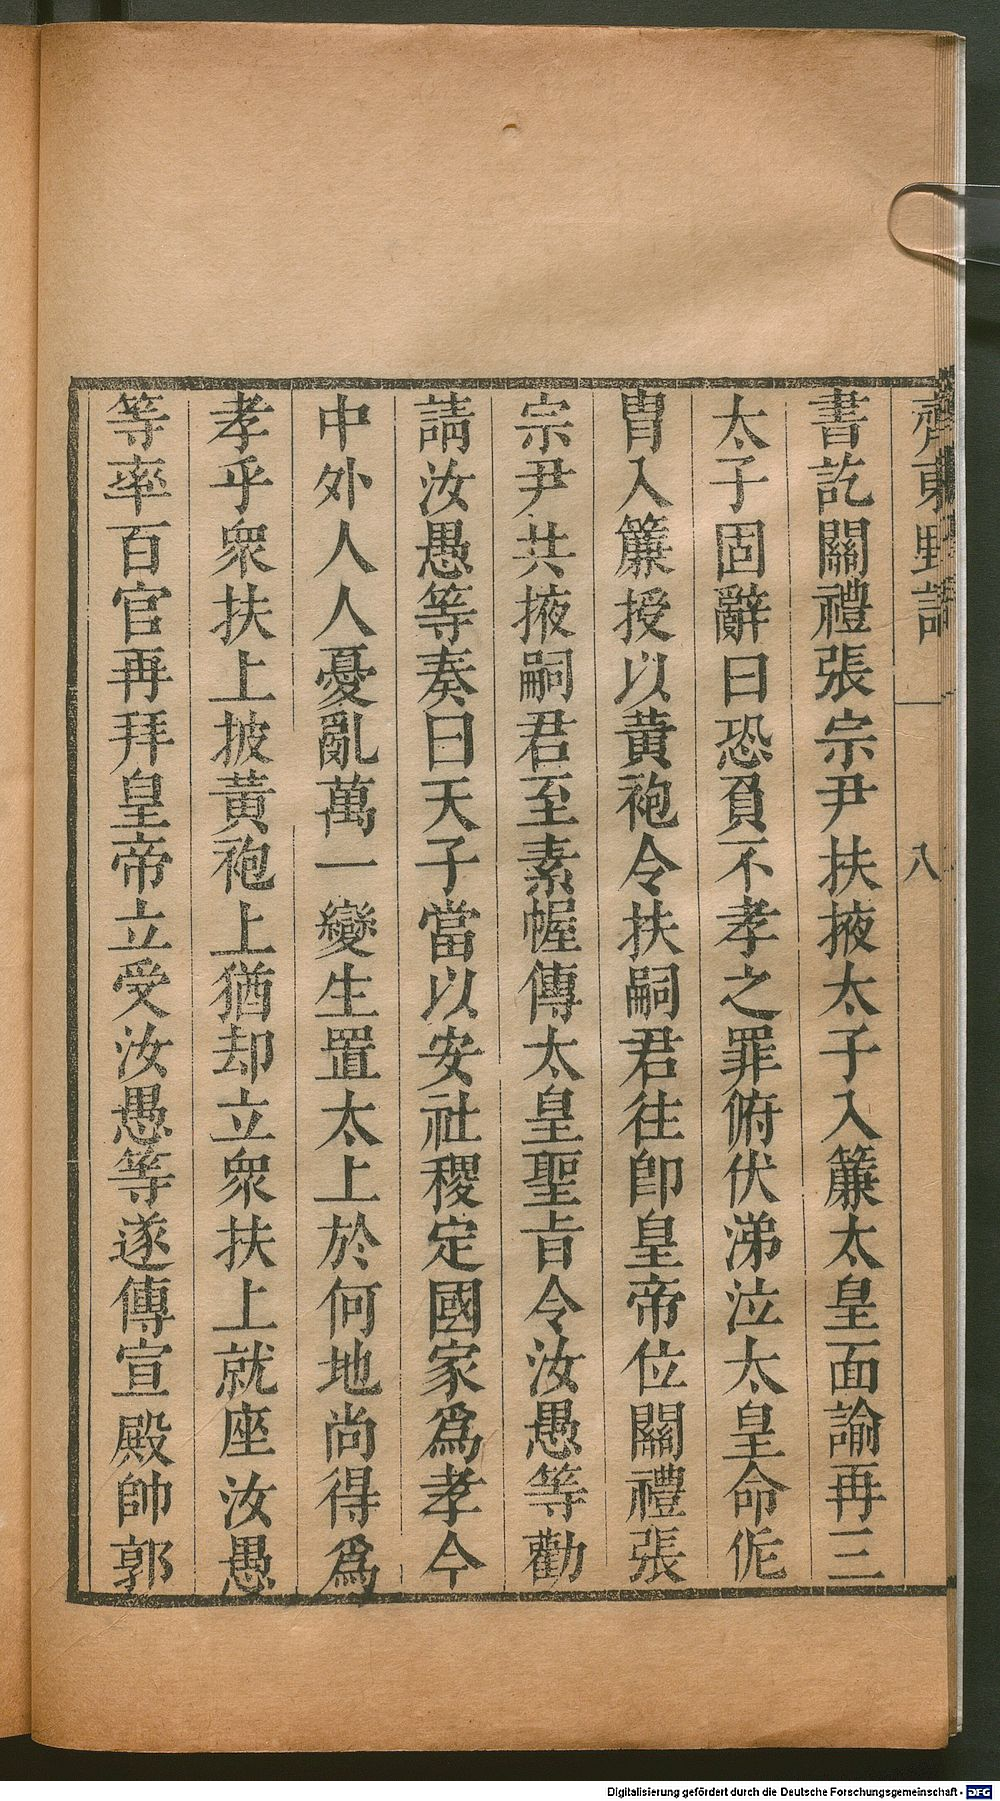 齊東野語
八
書訖關禮張宗尹扶掖太子入簾太皇面諭再三
太子固辭曰恐負不孝之罪俯伏涕泣太皇命侂
胄入簾授以黄袍令扶嗣君往卽皇帝位關禮張
宗尹共掖嗣君至素幄傳太皇聖旨令汝愚等勸
請汝愚等奏曰天子當以安社稷定國家爲孝今
中外人人憂亂萬一變生置太上於何地尚得爲
孝乎衆扶上披黄袍上猶却立衆扶上就座汝愚
等率百官再拜皇帝立受汝愚等遂傳宣殿帥郭
Digitalisierung gefördert durch die Deutsche Forschungsgemeinschaft - DFG